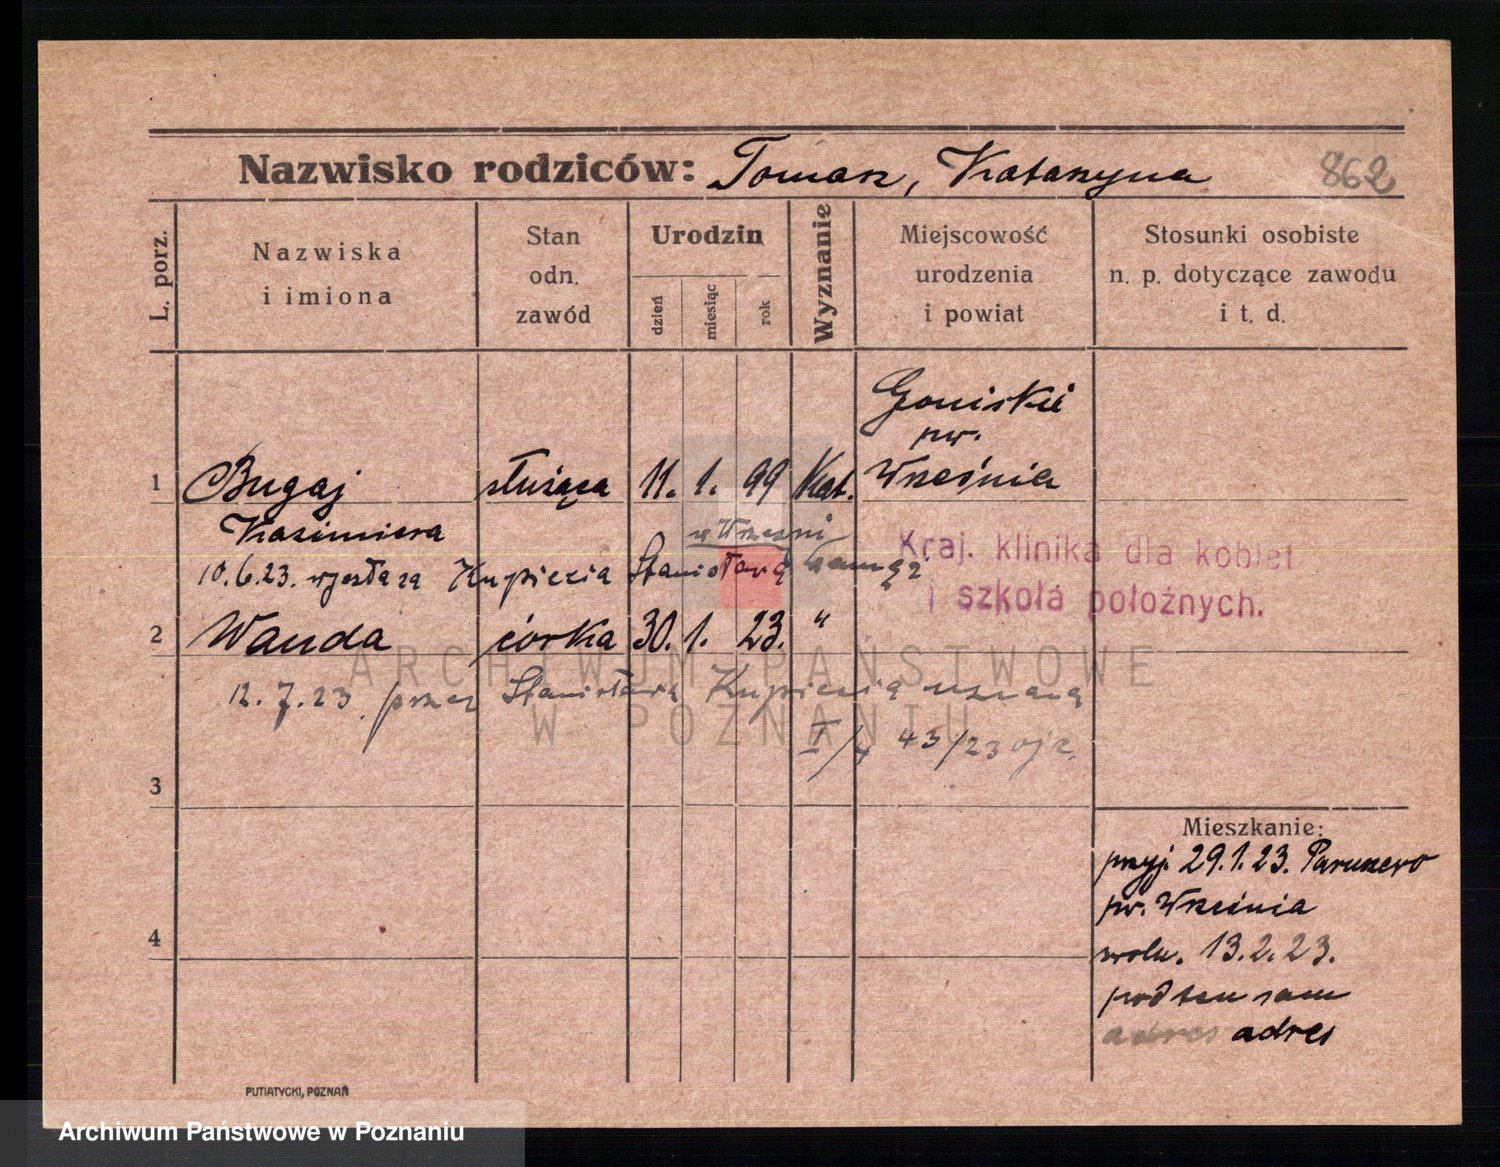 Nazwisko rodziców: Tomasz, Katarzyna 862
L. porz.
Nazwiska
i imiona
Stan
odn.
zawód
Urodzin
dzień
miesiąc
rok
Wyznanie
Miejscowość
urodzenia
i powiat
Stosunki osobiste
n. p. dotyczące zawodu
i t. d.
Goniskie
pw.
1 Bugaj służąca 11. 1. 99 Kat. Września
Kazimiera
w Wrześni
10.6.23. wyszła za Kupiecia Stanisława zamąż
Kraj. klinika dla kobiet
i szkoła położnych.
2 Wanda córka 30. 1. 23. "
12.7.23. przez Stanisława Kupiecia uznaną
I/4 43/23 ojc.
3
Mieszkanie:
przyj. 29.1.23. Paruszewo
pw. Września
4
zwoln. 13.2.23.
pod ten sam
adres adres
PUTIATYCKI, POZNAŃ
ARCHIWUM PAŃSTWOWE
W POZNANIU
Archiwum Państwowe w Poznaniu